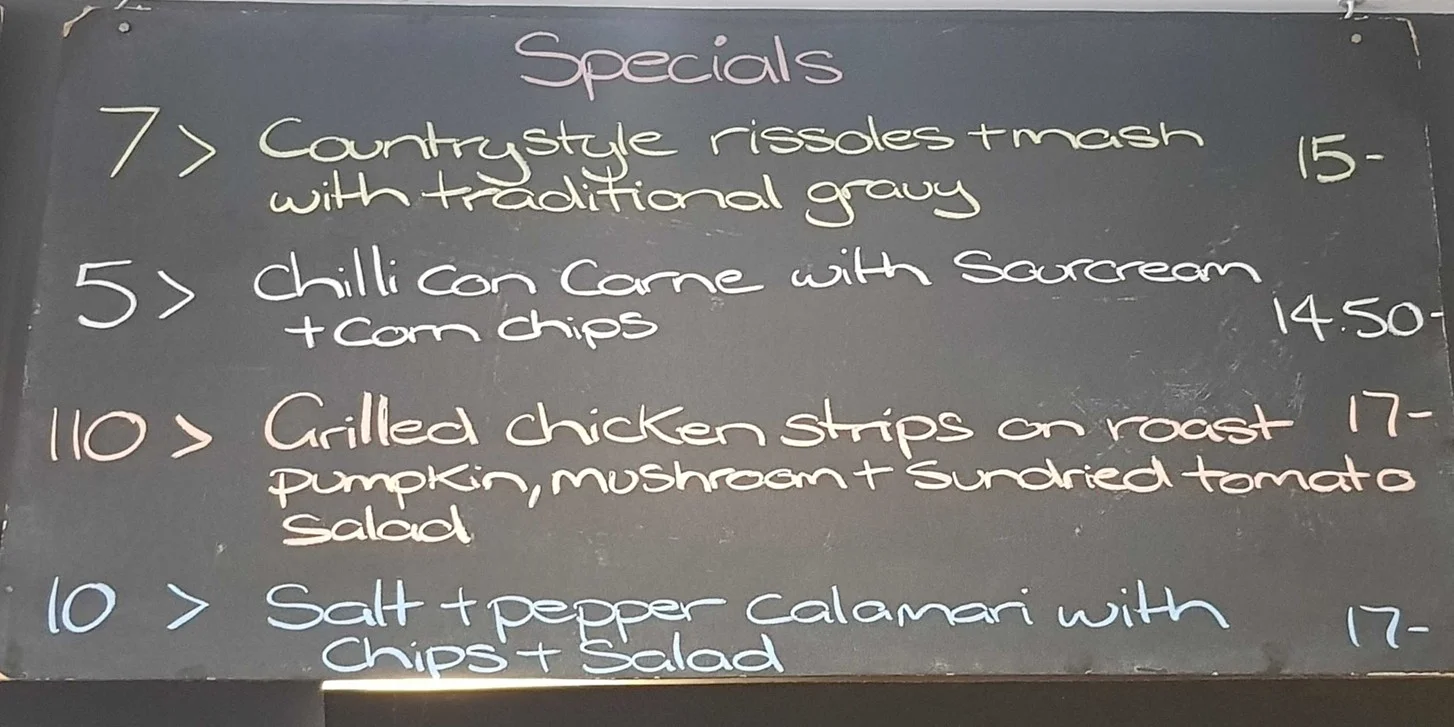 Specials
7> Countrystyle rissoles + mash 15-
with traditional gravy
5> Chilli con Carne with Sourcream
+ Corn chips 14.50-
110> Grilled chicken strips on roast 17-
pumpkin, mushroom + Sundried tomato
Salad
10> Salt + pepper Calamari with 17-
Chips + Salad